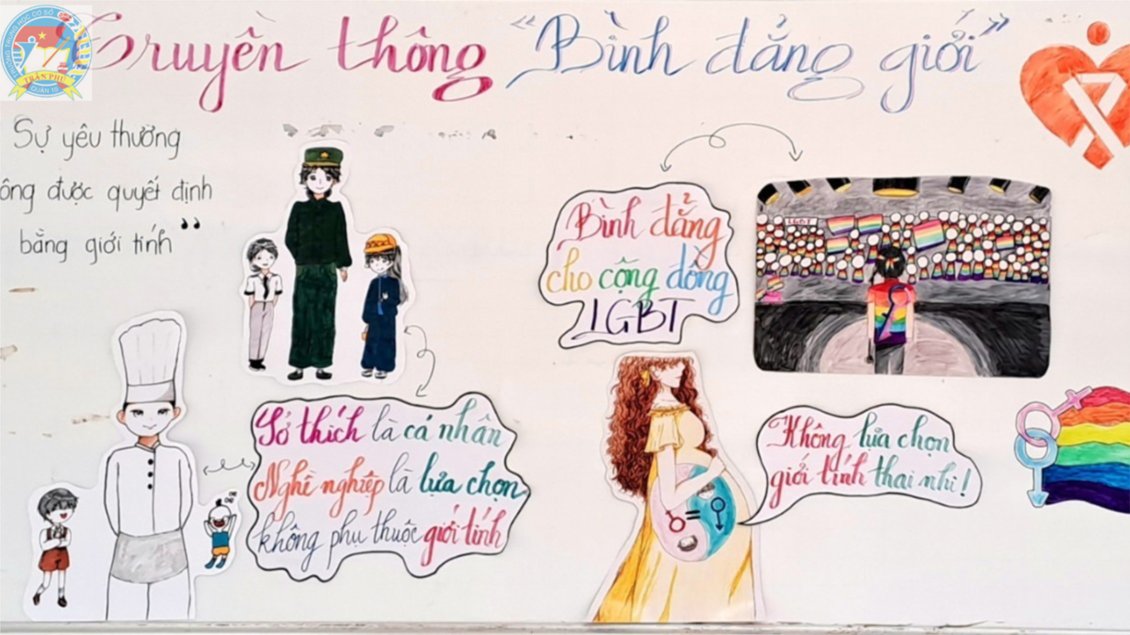 Truyền thông "Bình đẳng giới"
TRẦN PHÚ
Sự yêu thương
ông được quyết định
bằng giới tính"
Bình đẳng
cho cộng đồng
LGBT
LGBT
Sở thích là cá nhân
Nghề nghiệp là lựa chọn
không phụ thuộc giới tính
Không lựa chọn
giới tính thai nhi!